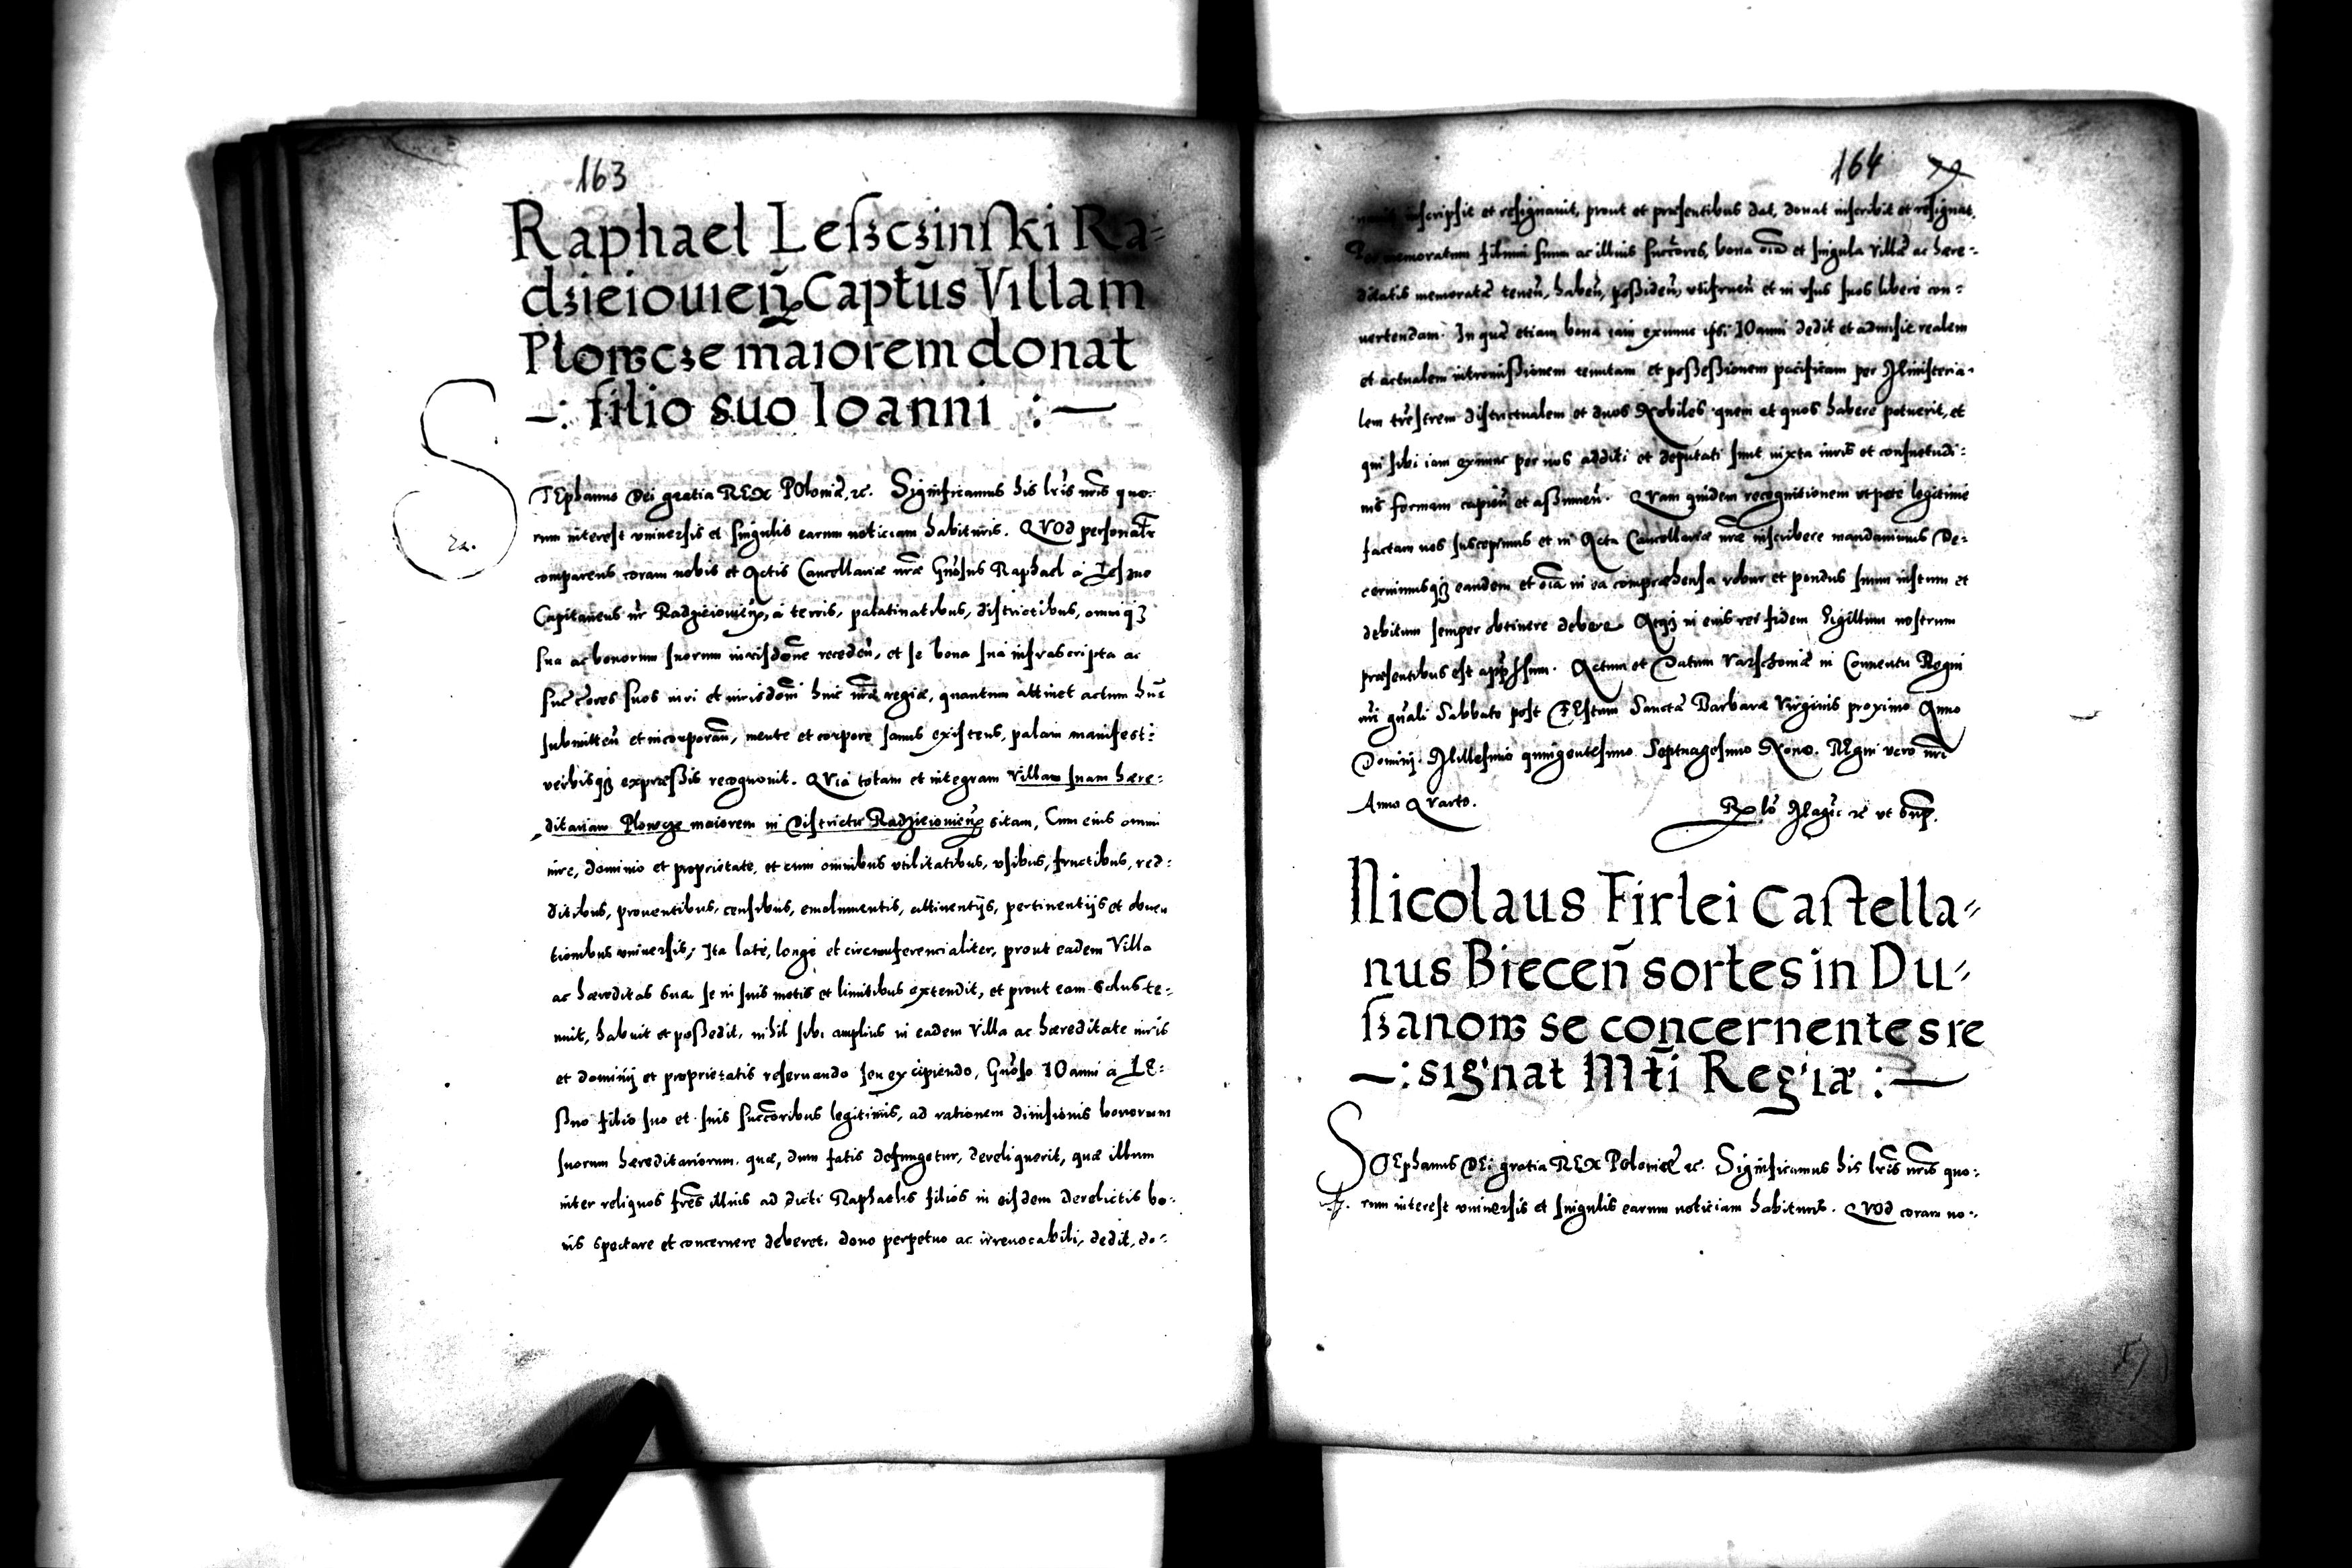 163
Raphael Lesʒcʒinski Ra=
dʒieiouień Capts Villam
Plowcʒe maiorem donat
—: filio suo Ioanni :—
STEphanus Dei gratia REX Poloniæ, &c. Significamus his lris nris quo-
rum interest vniuersis et singulis earum noticiam habituris. QVOd personalr
comparens coram nobis et Actis Cancellariæ nræ Gnosus Raphael á Lesno
Capitaneus nr Radzieiouień, á terris, palatinatibus, districtibus, omniqʒ
sua ac bonorum suorum iurisdone receden, et se bona sua infrascripta ac
succores suos iuri et iurisdoni huic nræ regiæ, quantum attinet actum hunc
submitten et incorporan, mente et corpore sanus existens, palam manifest:
verbisqʒ expressis recognouit. QVia totam et integram Villam suam hære=
ditariam Plowcze maiorem in Districtu Radzieiouień sitam, Cum eius omni
iure, dominio et proprietate, et cum omnibus vtilitatibus, vsibus, fructibus, red:
ditibus, prouentibus, censibus, emolumentis, attinentijs, pertinentijs et obuen
tionibus vniuersis, Ita late, longe et circumferencialiter, prout eadem Villa
ac hæreditas sua se in suis metis et limitibus extendit, et prout eam solus te:
nuit, habuit et possedit, nihil sibi amplius in eadem Villa ac hæreditate iuris
et dominij et proprietatis reseruando seu excipiendo, Gnoso IOanni á LE:
sno filio suo et suis succoribus legitimis, ad rationem diuisionis bonorum
suorum hæreditariorum, quæ, dum fatis defungetur, dereliquerit, quæ illum
inter reliquos fres illius ad dicti Raphaelis filios in eisdem derelictis bo:
nis spectare et concernere deberet, dono perpetuo ac irreuocabili, dedit, do:
164
nauit inscripsit et resignauit, prout et præsentibus dat, donat inscribit et resignat.
Per memoratum filium suum ac illius succores, bona oia et singula villæ ac hære:
ditatis memoratæ tenen, haben, possiden, vtifruen et in vsus suos libere con=
uertendam. In quæ etiam bona iam exnunc ipsi IOanni dedit et admisit realem
et actualem intromissionem et possessionem pacificam per Ministeria:
lem trrestrem districtualem et duos Nobiles quem et quos habere potuerit, et
qui sibi iam exnunc per nos additi et deputati sunt iuxta iuris et consuetudi:
nis formam capien et assumen. QVam quidem recognitionem vtpote legitime
factam nos suscepimus et in Acta Cancellariæ nræ inscribere mandauimus De:
cernimusqʒ eandem et oia in ea compræhensa robur et pondus suum iustum et
debitum semper obtinere debere. Atqʒ in eius rei fidem Sigillum nostrum
præsentibus est appssum. Actum et Datum Varschouiæ in Conuentu Regni
nri gnali Sabbato post FEstum Sanctæ Barbaræ Virginis proximo Anno
Dominj Millesimo quingentesimo Septuagesimo Nono. REgni vero nri
Anno QVarto.
Nicolaus Firlei Castella=
nus Biecen sortes in Du=
sʒanow se concernentes re
—: signat Mti Regiæ :—
STEphanus DEi gratia REX Poloniæ &c. Significamus his lris nris quo:
rum interest vniuersis et singulis earum noticiam habituris. QVOd coram no: